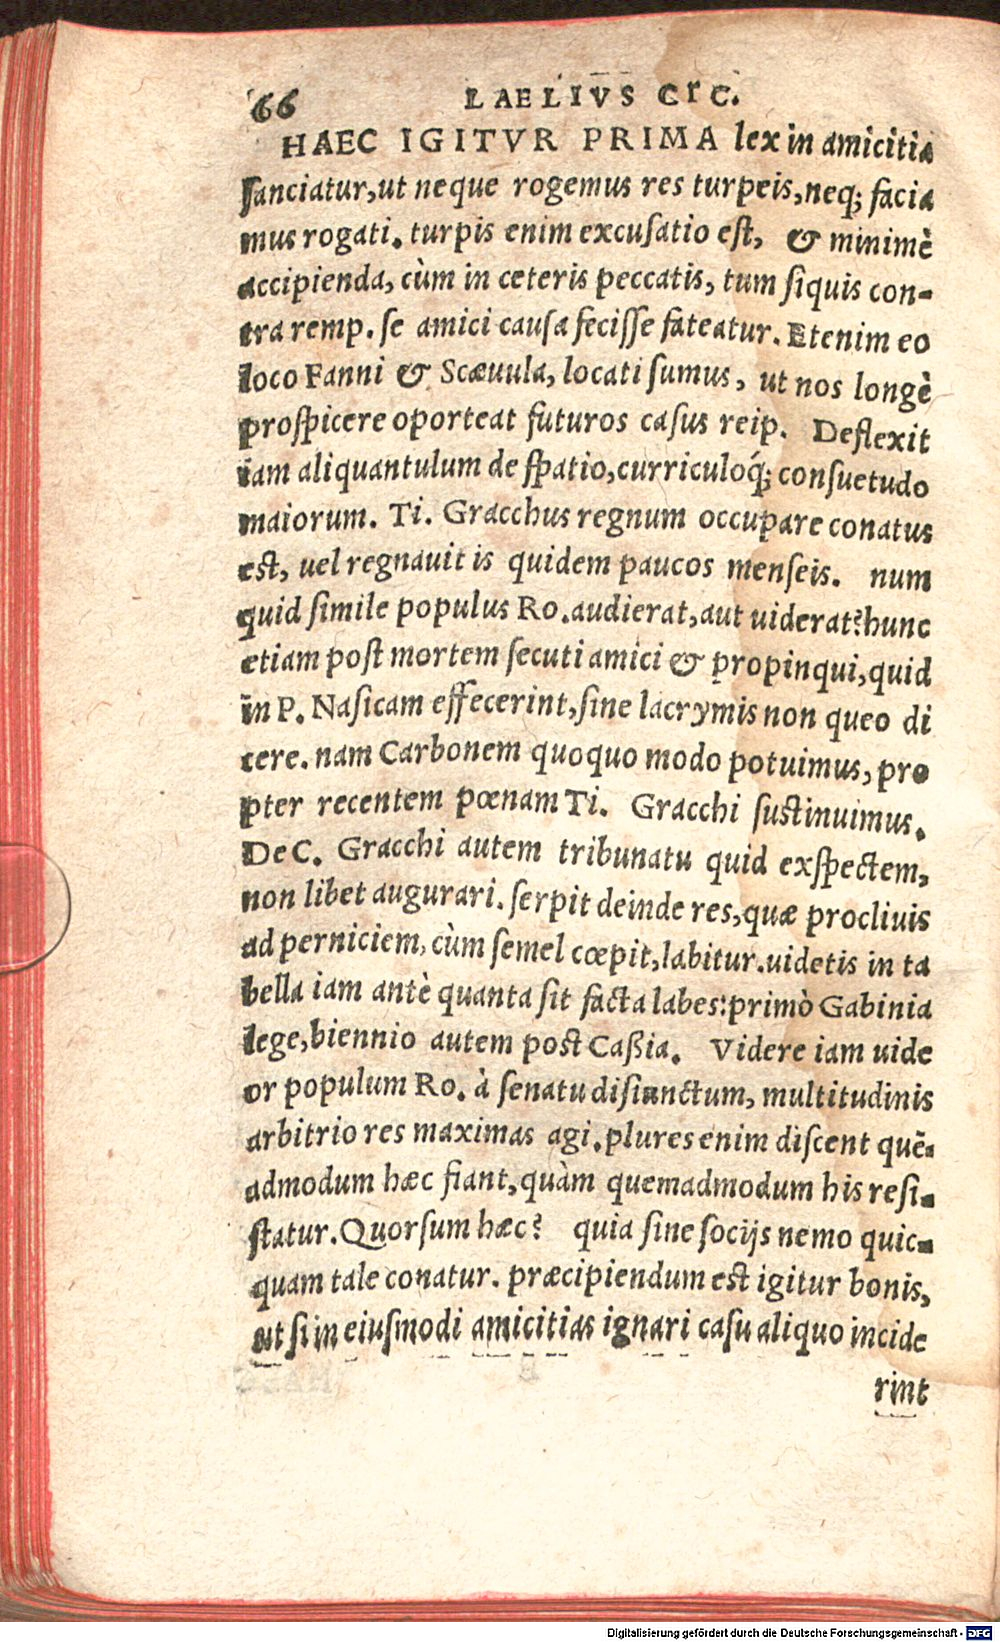 66 LAELIVS CIC.
HAEC IGITVR PRIMA lex in amicitia
ſanciatur,ut neque rogemus res turpeis,neq; facia
mus rogati. turpis enim excuſatio eſt, & minimè
accipienda, cùm in ceteris peccatis, tum ſiquis con-
tra remp. ſe amici cauſa feciſſe fateatur. Etenim eo
loco Fanni & Scæuula, locati ſumus, ut nos longè
proſpicere oporteat futuros caſus reip. Deflexit
iam aliquantulum de ſpatio,curriculoq́; conſuetudo
maiorum. Ti. Gracchus regnum occupare conatus
eſt, uel regnauit is quidem paucos menſeis. num
quid ſimile populus Ro. audierat,aut uiderat?hunc
etiam poſt mortem ſecuti amici & propinqui,quid
in P. Naſicam effecerint,ſine lacrymis non queo di
cere. nam Carbonem quoquo modo potuimus, pro
pter recentem pœnam Ti. Gracchi ſuſtinuimus.
De C. Gracchi autem tribunatu quid exſpectem,
non libet augurari. ſerpit deinde res,quæ procliuis
ad perniciem, cùm ſemel cœpit,labitur.uidetis in ta
bella iam antè quanta ſit facta labes:primò Gabinia
lege,biennio autem poſt Caßia. Videre iam uide
or populum Ro. à ſenatu diſiunctum, multitudinis
arbitrio res maximas agi.plures enim diſcent quē-
admodum hæc fiant,quàm quemadmodum his reſi-
ſtatur. Quorſum hæc? quia ſine ſocijs nemo quic-
quam tale conatur. præcipiendum eſt igitur bonis,
ut ſi in eiuſmodi amicitias ignari caſu aliquo incide
rint
Digitalisierung gefördert durch die Deutsche Forschungsgemeinschaft - DFG